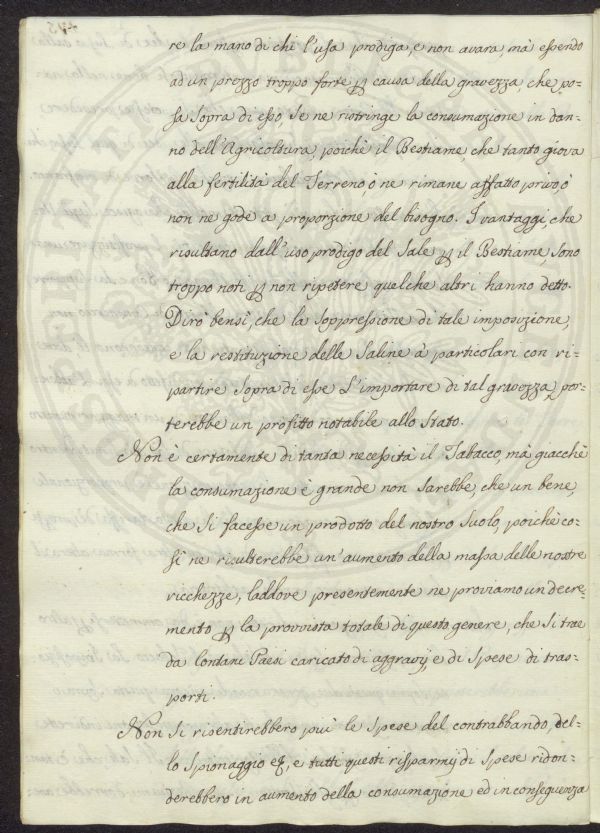 re la mano di chi l'usa prodiga, e non avara, mà essendo
ad un prezzo troppo forte ꝑ causa della gravezza, che po-
sa sopra di esso, se ne ristringe la consumazione in dan-
no dell'Agricoltura, poichè il Bestiame, che tanto giova
alla fertilità del Terreno, ò ne rimane affatto privo, ò
non ne gode a proporzione del bisogno. I vantaggi, che
risultano dall'uso prodigo del Sale ꝑ il Bestiame sono
troppo noti ꝑ non ripetere quelche altri hanno detto.
Dirò bensì, che la soppressione di tale imposizione,
e la restituzione delle Saline à particolari con ri-
partire sopra di esse l'importare di tal gravezza, por-
terebbe un profitto notabile allo Stato.
Non è certamente di tanta necessità il Tabacco, mà giacchè
la consumazione è grande non sarebbe, che un bene,
che si facesse un prodotto del nostro suolo, poichè co-
sì ne risulterebbe un'aumento della massa delle nostre
ricchezze, laddove presentemente ne proviamo un decre-
mento ꝑ la provvista totale di questo genere, che si trae
da lontani Paesi caricato di aggravj, e di spese di tras-
porti.
Non si risentirebbero più le spese del contrabbando, del-
lo spionaggio &c, e tutti questi risparmj di spese ridon-
derebbero in aumento della consumazione ed in conseguenza